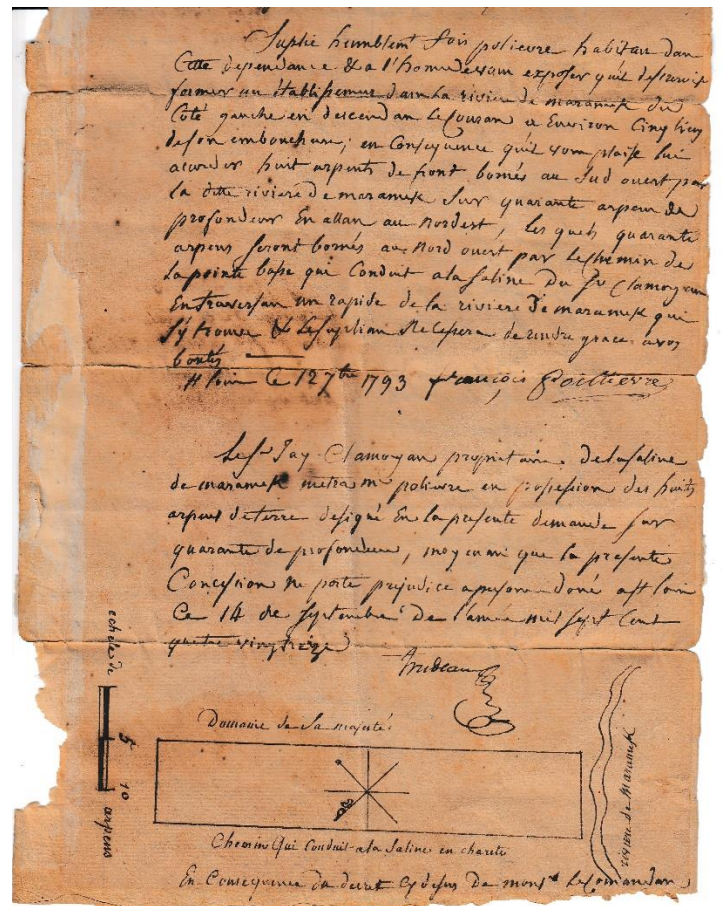 Suplie humblemt fois policure habitan dan
Cette dependance & a l'honneur exposer qu'il desireroit
former un établissement dans la riviere de maramek du
Coté gauche en descendan le Couran a Environ Cinq lieu
de son embouchure; en Consequence qu'il vous plaise lui
acorder huit arpents de front bornés au Sud ouest par
la ditte riviere de maramek Sur quarante arpens de
profondeur En allan au Nordest, les quels quarante
arpens seront bornés au Nord ouest par le chemin de
la pointe base qui Conduit a la Saline Du Sr Clamorgan
En traversan un rapide de la riviere de maramek qui
s'y trouve & le suplian ne cessera de rendre grace a vos
bontés
St loui Ce 12 7bre 1793 françois Poillievre
Le Sr Jaq Clamorgan proprietaire de la saline
de maramek metra m policure en possession des huits
arpens de terre designé En la presente demande sur
quarante de profondeur, moyenant que la presente
Concession ne porte prejudice a personne doné a St loui
Ce 14 de Septembre De l'année mil sept Cent
quatre vingt treize
Trudeau
echele de 5 10 arpens
Domaine de Sa majesté
riviere de Maramek
Chemin Qui Conduit a la Saline en charete
En Consequence du decret cy desus De monsr Le Comandan